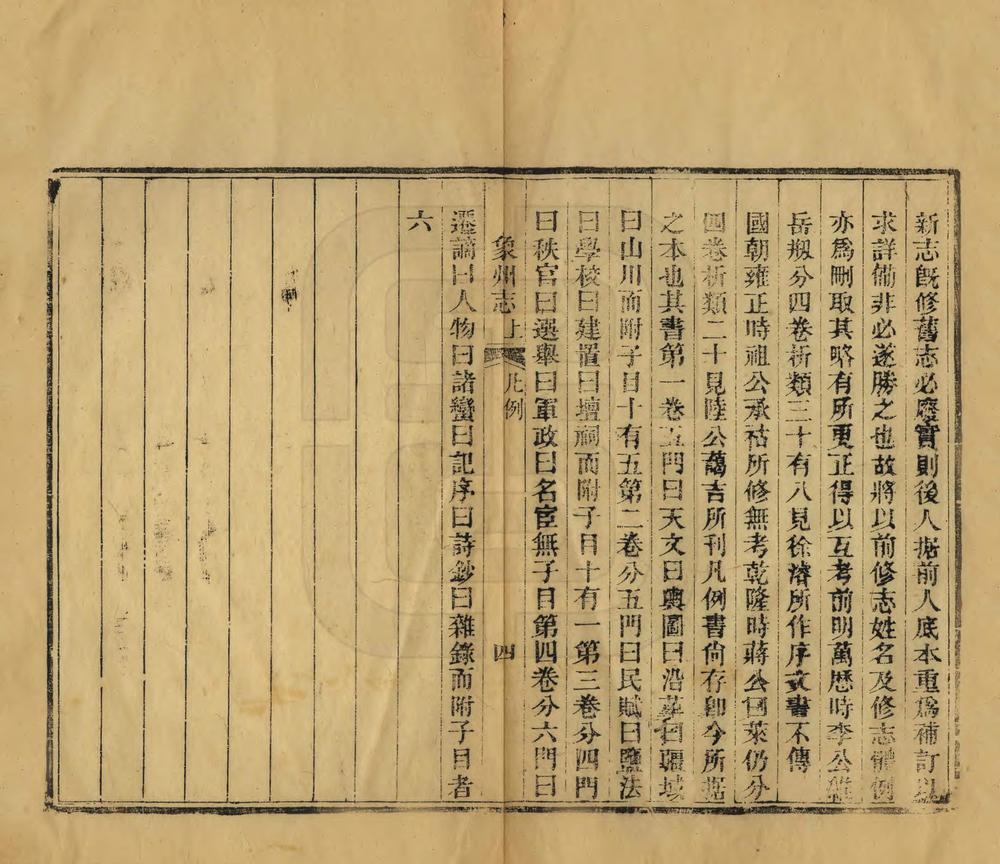 新志既修舊志必廢實則後人据前人底本重為補訂以
求詳備非必遂勝之也故將以前修志姓名及修志體例
亦為刪取其略有所更正得以互考前明萬歷時李公
岳撥分四卷析類三十有八見徐濬所作序文書不傳
國朝雍正時祖公承祜所修無考乾隆時蔣公曰萊仍分
四卷析類二十見陸公藹吉所刊凡例書尙存即今所据
之本也其書第一卷五門曰天文曰輿圖曰沿革曰疆域
曰山川而附子目十有五第二卷分五門曰民賦曰鹽法
曰學校曰建置曰壇祠而附子目十有一第三卷分四門
曰秩官曰選舉曰軍政曰名宦無子目第四卷分六門曰
象州志 上 凡例 四
遷謫曰人物曰諸蠻曰記序曰詩鈔曰雜錄而附子目者
六